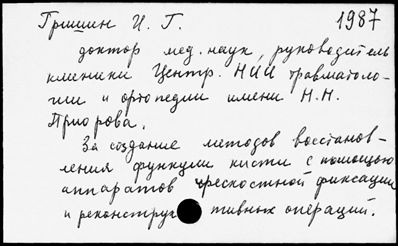 Гришин И. Г. 1987
доктор мед. наук, руководитель
клиники Центр. НИИ травматоло-
гии и ортопедии имени Н.Н.
Приорова.
За создание методов восстанов-
ления функции кисти с помощью
аппаратов чрескостной фиксации
и реконструк тивных операций.